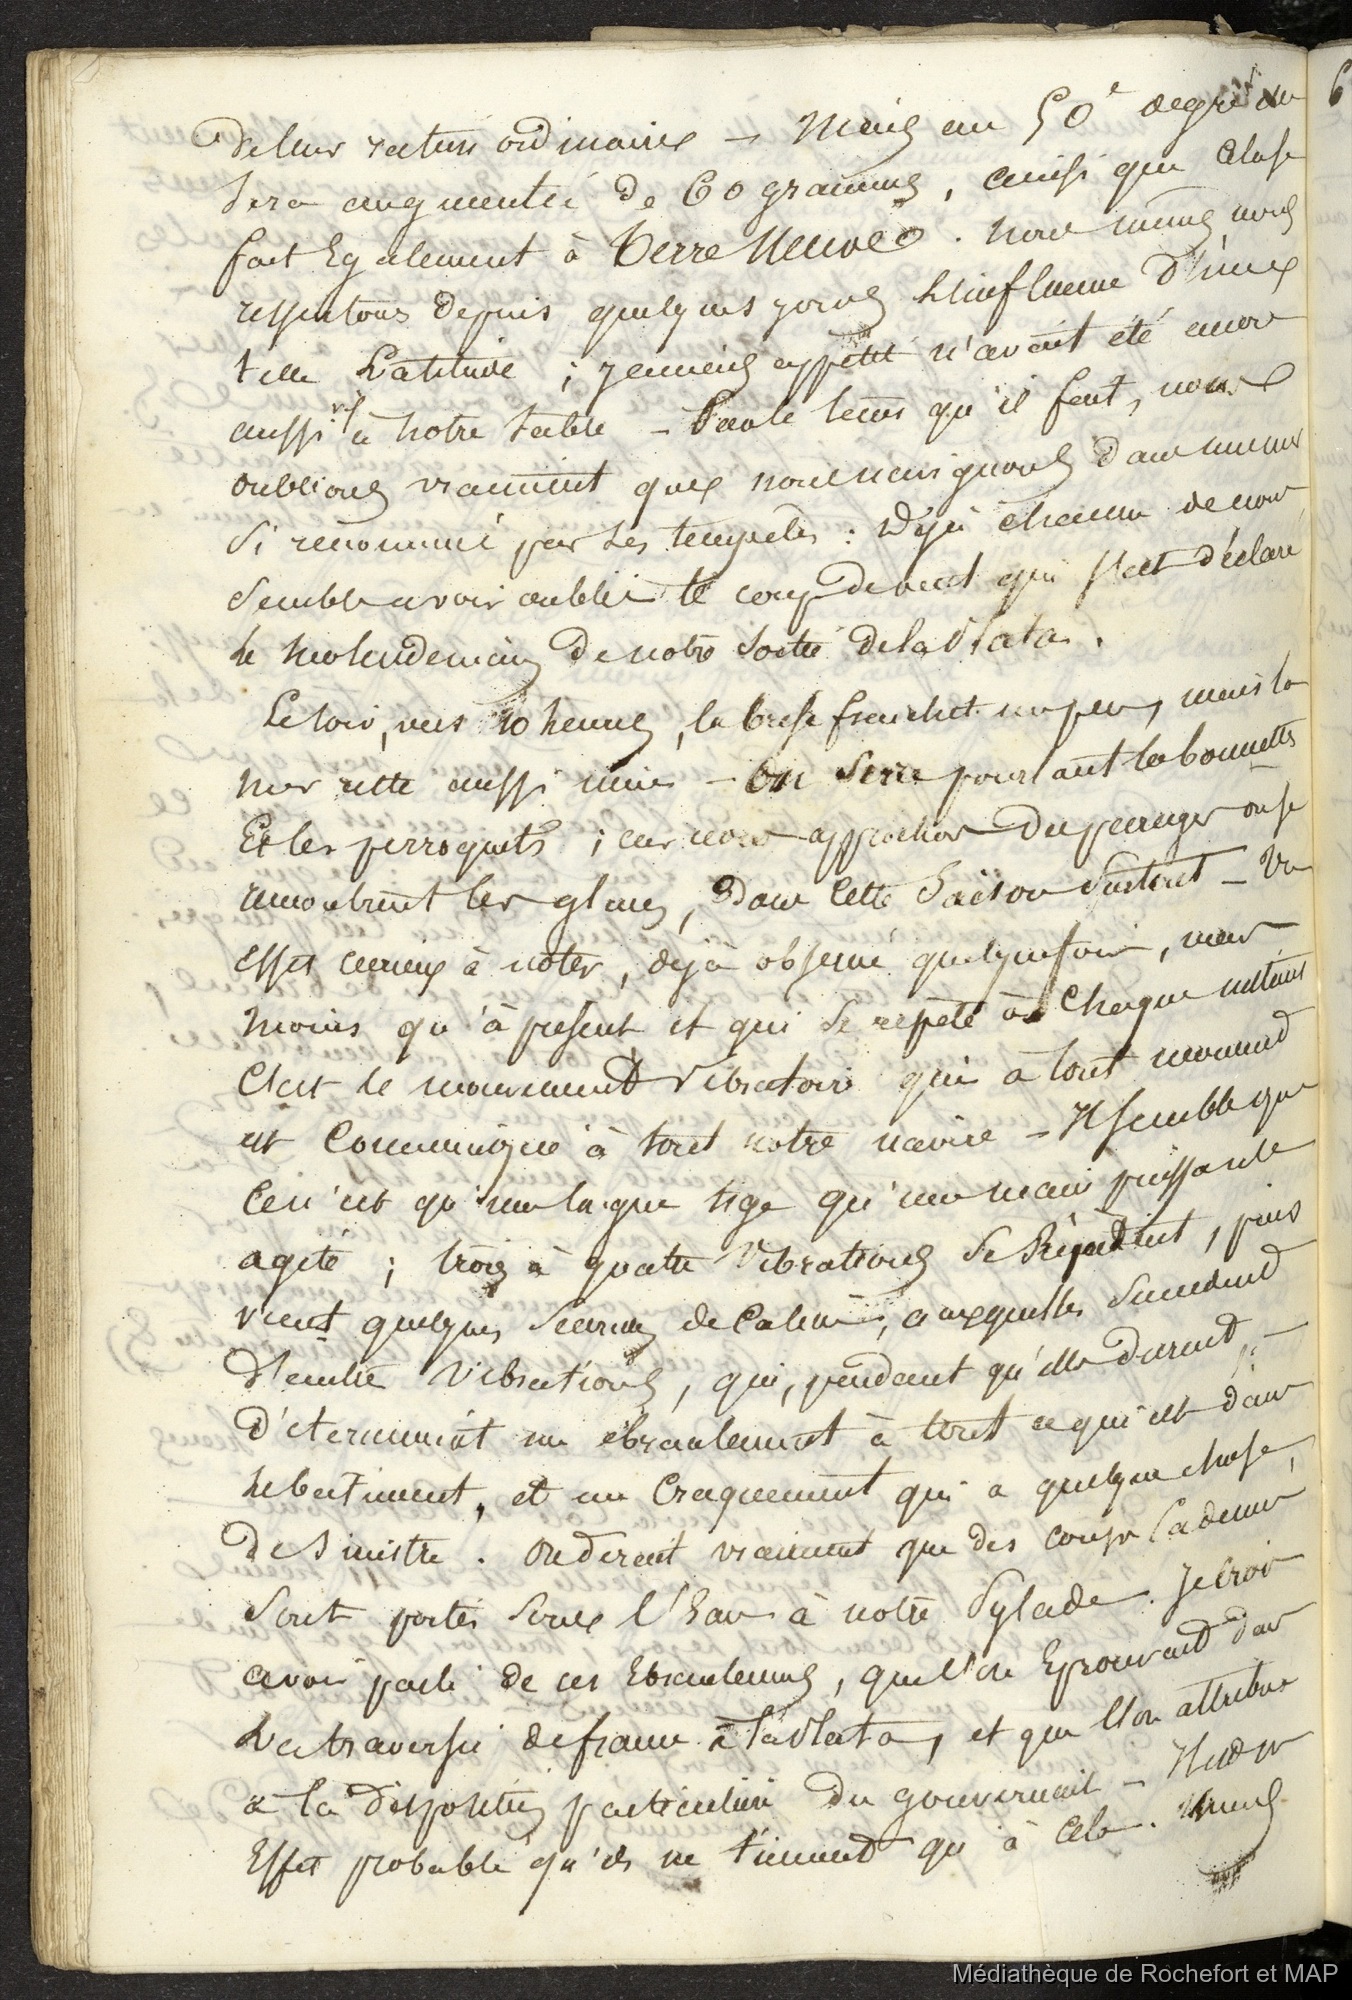 de leur ration ordinaire – Mais au 50e degré elle
sera augmentée de 60 grammes, ainsi que cela se
fait Egalement à Terre Neuve. Nous mêmes, nous
ressentons depuis quelques jours l'influence d'une
telle Latitude ; jamais appétit n'avait été encore
aussi vif à notre table – Par le tems qu'il fait, nous
oublions vraiment que nous naviguons dans une mer
si renommée par ses tempêtes : Déjà chacun de nous
semble avoir oublié le coup de vent qui s'est déclaré
le surlendemain de notre sortie de la Plata.
Le soir, vers 10 heures, la brise fraichit un peu, mais la
mer reste aussi unie – On serre pourtant les bonnettes
Et les perroquets ; car nous approchons des parages où se
rencontrent les glaces, Dans Cette Saison surtout – Un
effet curieux à noter, déjà observé quelquefois, mais
moins qu'à présent et qui se répète à Chaque instant
C'est le mouvement vibratoire qui à tout moment
est Communiqué à tout notre navire – Il semble que
Ce n'est qu'une longue tige qu'une main puissante
agite ; trois à quatre vibrations se répètent, puis
vient quelques secondes de Calme, auxquelles succèdent
d'autres vibrations, qui, pendant qu'elles durent, –
déterminent un ébranlement à tout ce qui est dans
le bâtiment, et un Craquement qui a quelque chose,
de Sinistre. On dirait vraiment que des coups Cadencés
sont portés sous l'Eau à notre Pylade. Je crois
avoir parlé de ces Ebranlemens, que l'on Eprouvait dans
la traversée de france à la Plata, et que l'on attribue
à la disposition particulière du gouvernail – Il est en
Effet probable qu'ils ne tiennent qu'à cela.
6
Médiathèque de Rochefort et MAP